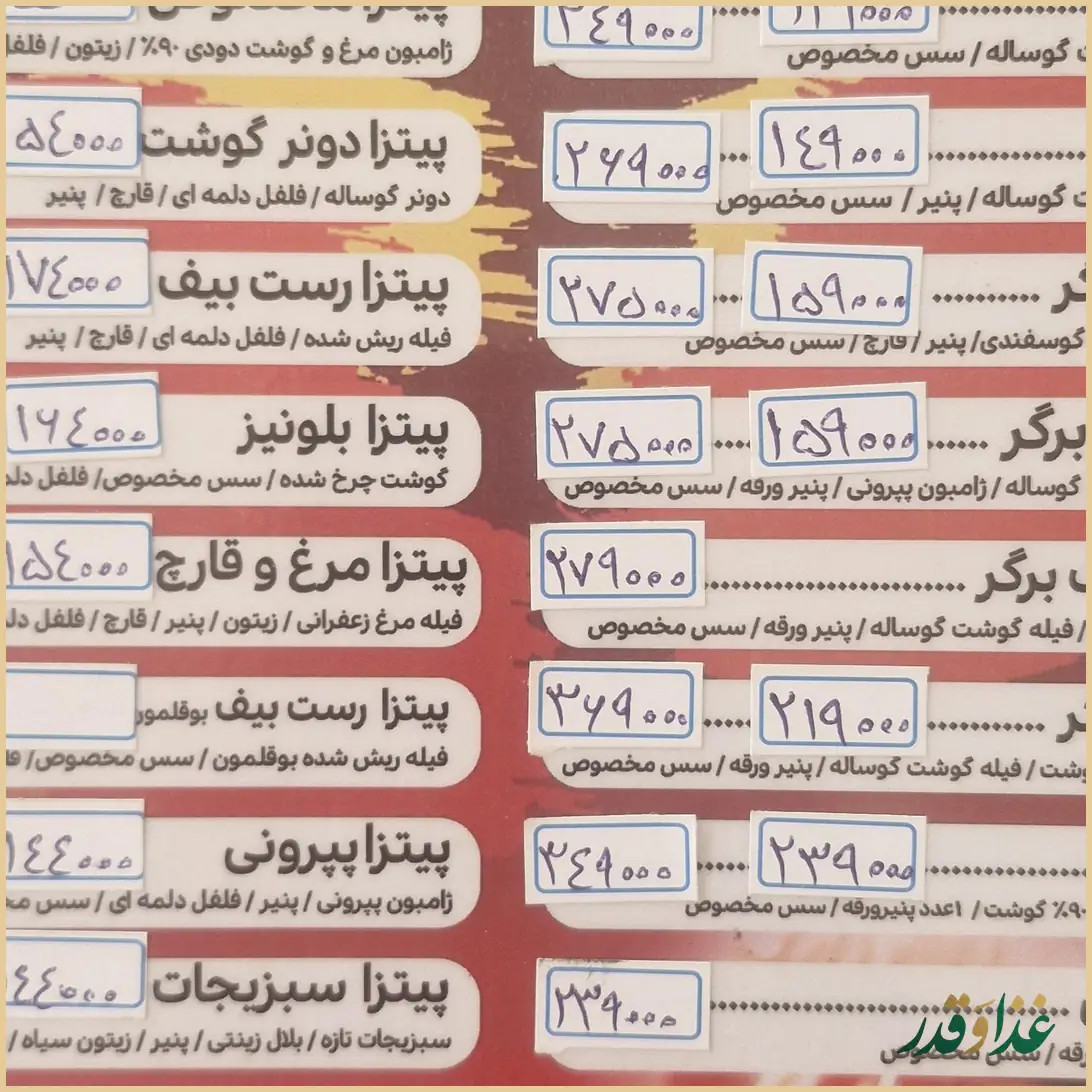 ۱۲۹۰۰۰ ۲۴۹۰۰۰
گوساله / سس مخصوص
.................... ۱۴۹۰۰۰ ... ۲۶۹۰۰۰
گوساله / پنیر / سس مخصوص
........... ۱۵۹۰۰۰ ... ۲۷۵۰۰۰
گوسفندی/ پنیر / قارچ / سس مخصوص
برگر ...... ۱۵۹۰۰۰ .... ۲۷۵۰۰۰
گوساله / ژامبون پپرونی / پنیر ورقه / سس مخصوص
برگر .......................... ۲۷۹۰۰۰
/ فیله گوشت گوساله / پنیر ورقه / سس مخصوص
............ ۲۱۹۰۰۰ ..... ۳۶۹۰۰۰
/ فیله گوشت گوساله / پنیر ورقه / سس مخصوص
................ ۲۳۹۰۰۰ ..... ۳۴۹۰۰۰
۹۰٪ گوشت / ۱عدد پنیرورقه / سس مخصوص
.................................... ۲۳۹۰۰۰
/ سس مخصوص
ژامبون مرغ و گوشت دودی ۹۰٪ / زیتون /
پیتزا دونر گوشت ۵۴۰۰۰
دونر گوساله / فلفل دلمه ای / قارچ / پنیر
پیتزا رست بیف ۱۷۴۰۰۰
فیله ریش شده / فلفل دلمه ای / قارچ / پنیر
پیتزا بلونیز ۱۶۴۰۰۰
گوشت چرخ شده / سس مخصوص/ فلفل
پیتزا مرغ و قارچ ۱۵۴۰۰۰
فیله مرغ زعفرانی / زیتون / پنیر / قارچ / فلفل
پیتزا رست بیف بوقلمون
فیله ریش شده بوقلمون / سس مخصوص/
پیتزا پپرونی ۱۴۴۰۰۰
ژامبون پپرونی / پنیر / فلفل دلمه ای / سس
پیتزا سبزیجات ۴۴۰۰۰
سبزیجات تازه / بلال زینتی / پنیر / زیتون سیاه /
غذا و قدر